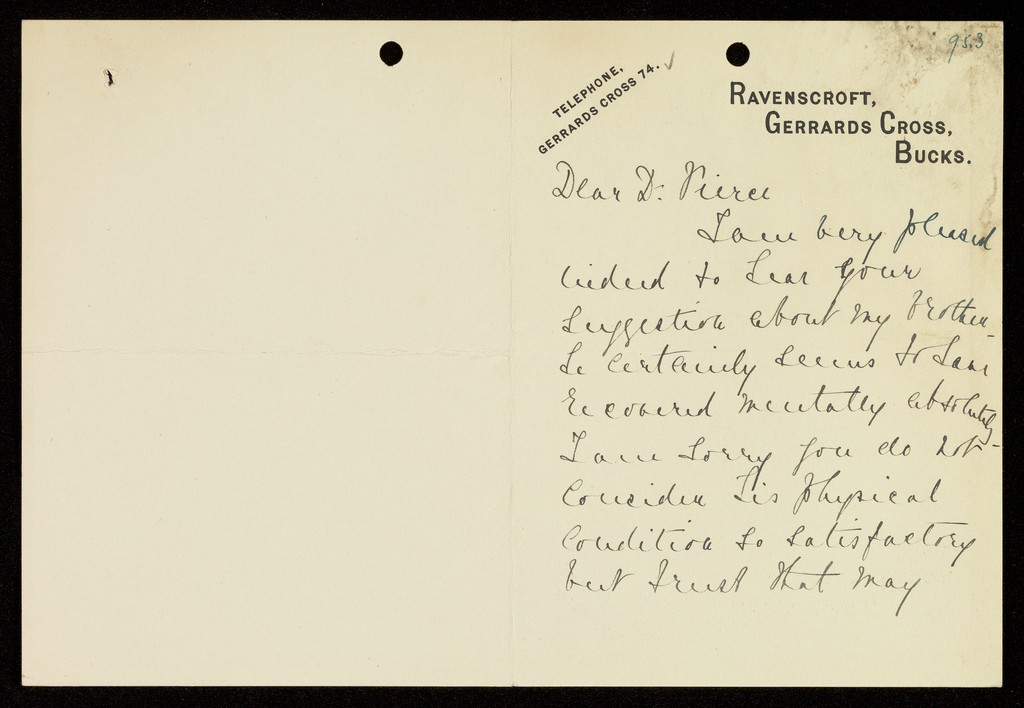 953
TELEPHONE,
GERRARDS CROSS 74.
RAVENSCROFT,
GERRARDS CROSS,
BUCKS.
Dear Dr. Pierce
I am very pleased
indeed to hear your
suggestion about my brother -
he certainly seems to have
recovered mentally absolutely -
I am sorry you do not
consider his physical
condition so satisfactory
but trust that may